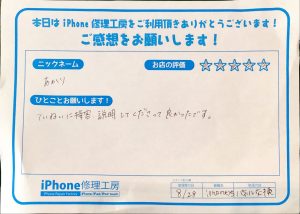 本日は iPhone 修理工房をご利用頂きありがとうございます!
ご感想をお願いします!
ニックネーム
お店の評価
あかり
ひとことお願いします!
ていねいに接客 説明してくださって良かったです。
iPhone修理工房
8/28